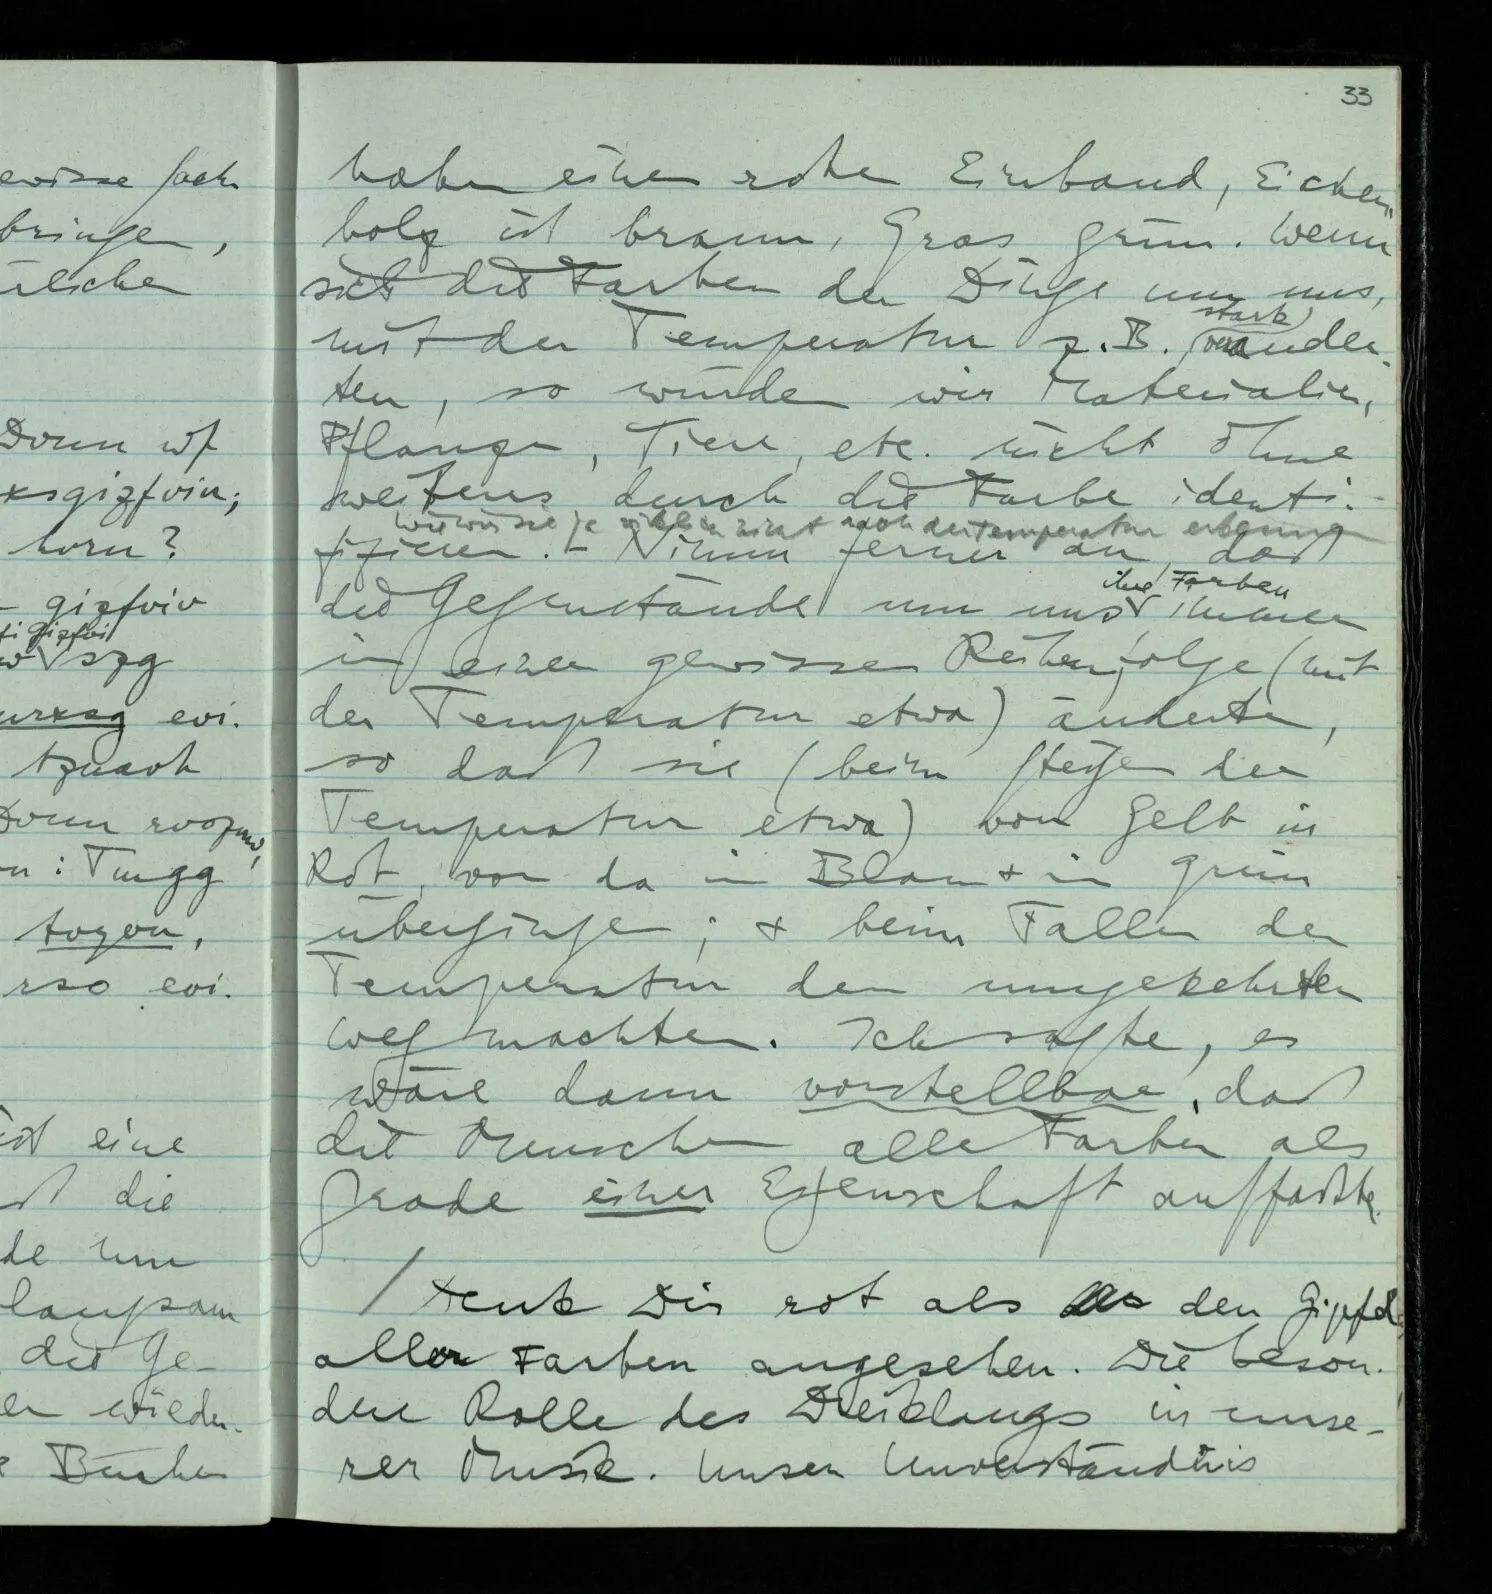 ewisse Sach
bringen,
älschen
Dvun
xsgizfvin;
horn?
gizfviv
szg
evi.
Dvun
: Tmgg
tozvn,
rso evi.
ist eine
die
de
langsam
die Ge-
er wieder-
Bücher
33
haben einen roten Einband, Eichen-
holz ist braun, Gras grün. Wenn
sich die Farben der Dinge um uns,
mit der Temperatur z.B. stark änder-
ten, so würden wir Materialien,
Pflanzen, Tiere, etc. nicht ohne
weiteres durch die Farbe identi-
nicht von der Temperatur
fizieren. – Nimm ferner an, daß
die Gegenstände um uns ihre Farben immer
in einer gewissen Reihenfolge (mit
der Temperatur etwa) änderten,
so daß sie (beim Steigen der
Temperatur etwa) von Gelb in
Rot, von da in Blau + in grün
übergingen; + beim Fallen der
Temperatur den umgekehrten
Weg machten. Ich sagte, es
wäre dann vorstellbar, daß
die Menschen alle Farben als
Grade einer Eigenschaft auffaßten.
/ Denk Dir rot als den Gipfel
aller Farben angesehen. Die beson-
dere Rolle des Dreiklangs in unse-
rer Musik. Unser Unverständnis